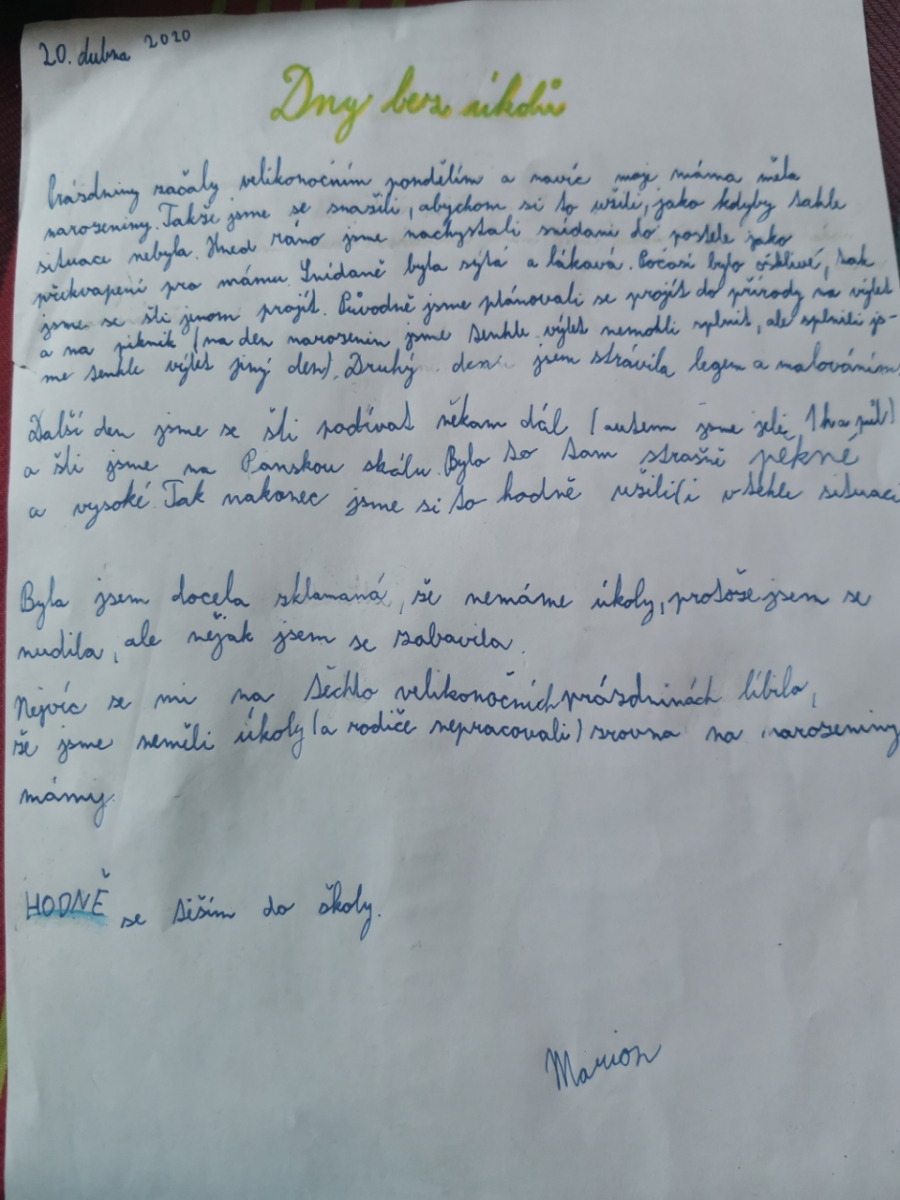 20. dubna 2020
Dny bez úkolů
Prázdniny začaly velikonočním pondělím a navíc moje máma měla
narozeniny. Takže jsme se snažili, abychom si to užili, jako kdyby tahle
situace nebyla. Hned ráno jsme nachystali snídani do postele jako
překvapení pro mámu. Snídaně byla sytá a lákavá. Počasí bylo ošklivé, tak
jsme se šli jenom projít. Původně jsme plánovali se projít do přírody na výlet
a na piknik (na den narozenin jsme tenhle výlet nemohli splnit, ale splnili js-
me tenhle výlet jiný den). Druhý den jsem strávila legem a malováním
Další den jsme se šli podívat někam dál (autem jsme jeli 1h a půl)
a šli jsme na Panskou skálu. Bylo to tam strašně pěkné
a vysoké. Tak nakonec jsme si to hodně užili (i v téhle situaci
Byla jsem docela zklamaná, že nemáme úkoly, protože jsem se
nudila, ale nějak jsem se zabavila.
Nejvíc se mi na těchto velikonočních prázdninách líbilo,
že jsme neměli úkoly (a rodiče nepracovali) zrovna na narozeniny
mámy.
HODNĚ se těším do školy.
Marion